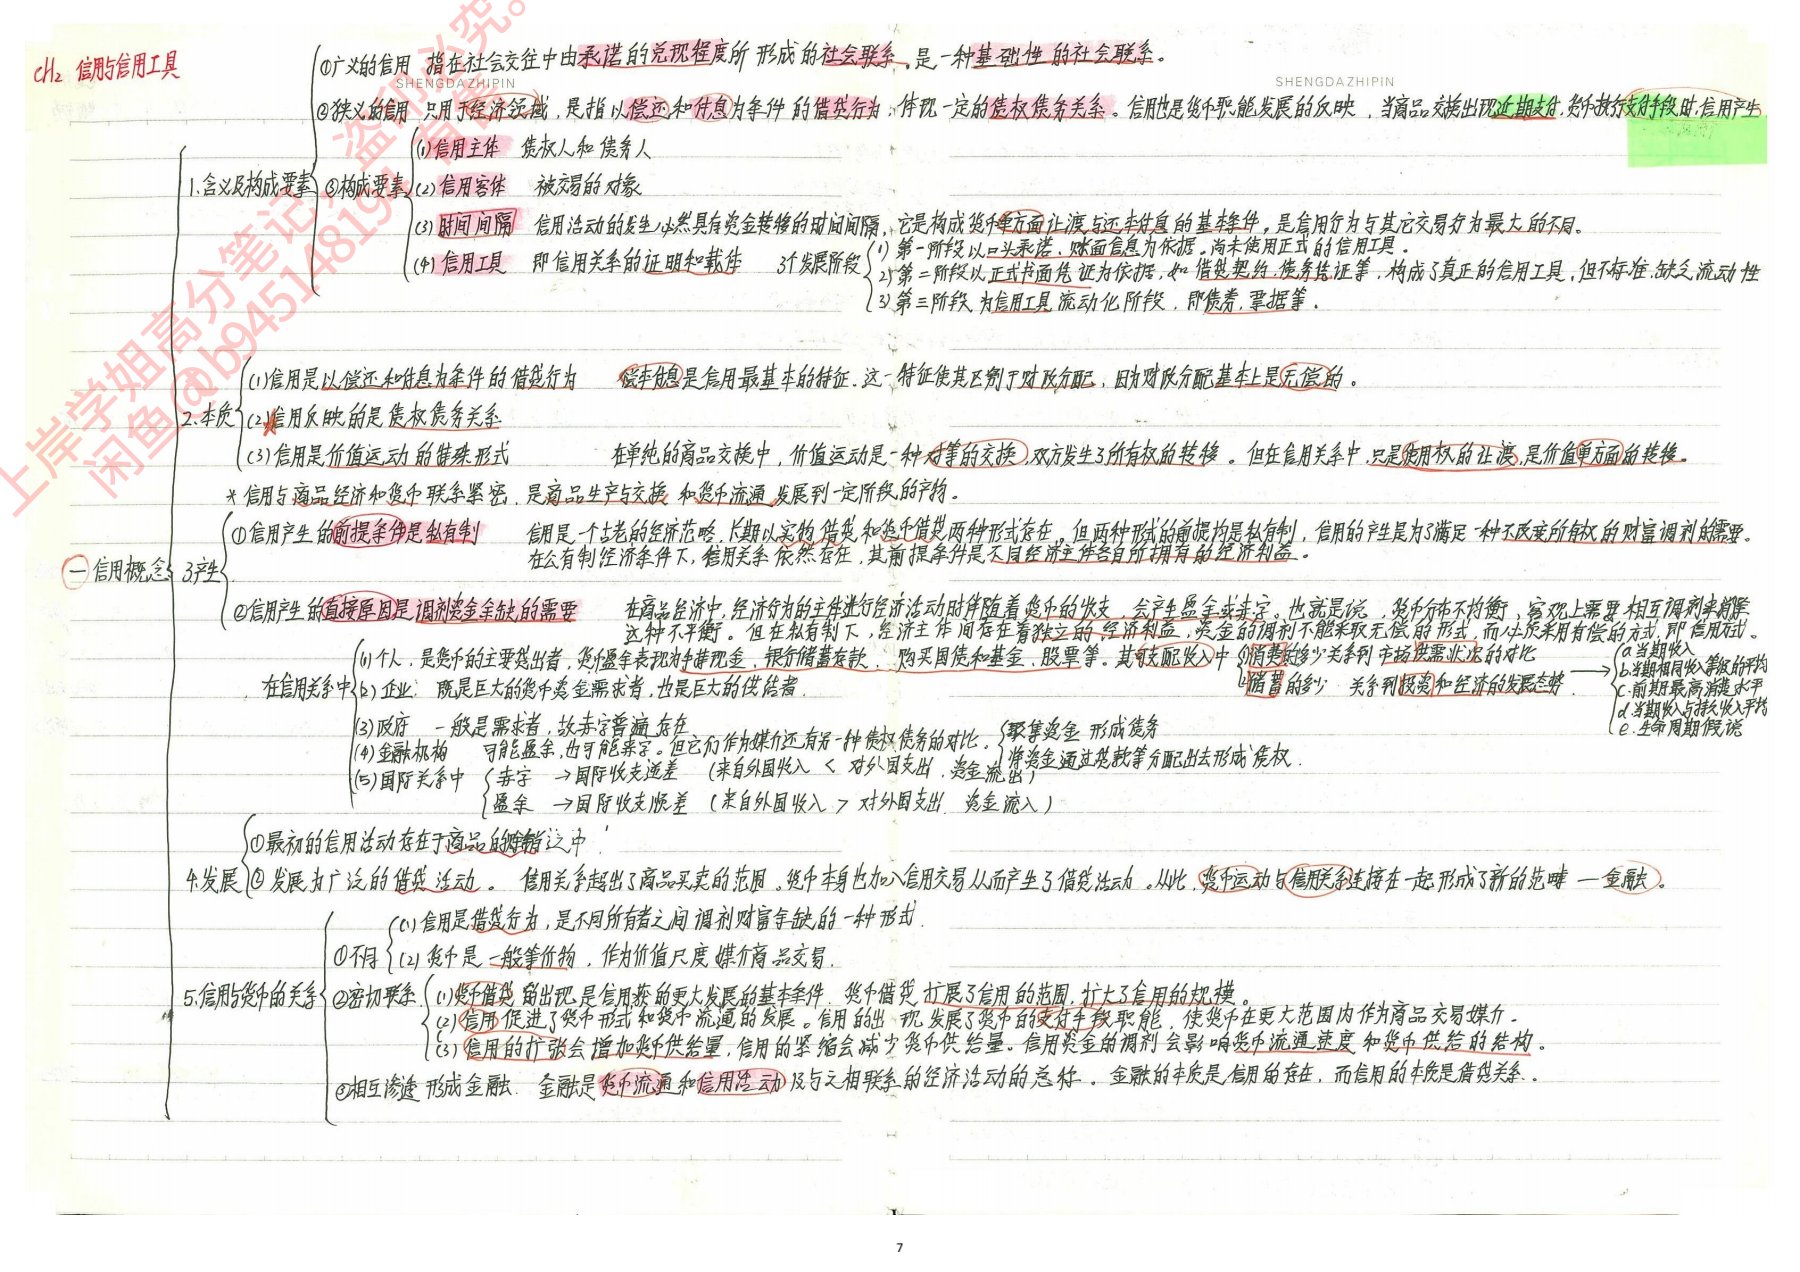 CH2 信用与信用工具
①广义的信用 指在社会交往中由承诺的兑现程度所形成的社会联系,是一种基础性的社会联系。
SHENGDAZHIPIN
SHENGDAZHIPIN
②狭义的信用 只用于经济领域,是指以偿还和付息为条件的借贷行为,体现一定的债权债务关系。信用也是货币职能发展的反映,当商品交换出现延期支付,货币执行支付手段时,信用产生
1.含义及构成要素
③构成要素
(1)信用主体 债权人和债务人
(2)信用客体 被交易的对象
(3)时间间隔 信用活动的发生必然具有资金转移的时间间隔,它是构成货币单方面让渡与还本付息的基本条件,是信用行为与其它交易行为最大的不同。
(4)信用工具 即信用关系的证明和载体 3个发展阶段
1)第一阶段以口头承诺,账面信息为依据,尚未使用正式的信用工具.
2)第二阶段以正式书面凭证为依据,如借贷契约,债务凭证等,构成了真正的信用工具,但不标准,缺乏流动性
3)第三阶段为信用工具流动化阶段,即债券,票据等.
2.本质
(1)信用是以偿还和付息为条件的借贷行为 偿本付息是信用最基本的特征.这一特征使其区别于财政分配,因为财政分配基本上是无偿的。
(2)信用反映的是债权债务关系
(3)信用是价值运动的特殊形式 在单纯的商品交换中,价值运动是一种对等的交换,双方发生了所有权的转移。但在信用关系中,只是使用权的让渡,是价值单方面的转移。
*信用与商品经济和货币联系紧密,是商品生产与交换和货币流通发展到一定阶段的产物。
一 信用概念
3产生
①信用产生的前提条件是私有制 信用是一个古老的经济范畴,长期以实物借贷和货币借贷两种形式存在。但两种形式的前提均是私有制,信用的产生是为了满足一种不改变所有权的财富调剂的需要。
在公有制经济条件下,信用关系依然存在,其前提条件是不同经济主体各自所拥有的经济利益。
②信用产生的直接原因是调剂资金余缺的需要 在商品经济中,经济行为的主体进行经济活动时伴随着货币的收支,会产生盈余或赤字。也就是说,货币分布不均衡,客观上需要相互调剂来解除
这种不平衡。但在私有制下,经济主体间存在着独立的经济利益,资金的调剂不能采取无偿的形式,而必须采用有偿的方式,即信用方式。
在信用关系中
(1)个人,是货币的主要贷出者,货币盈余表现为手持现金,银行储蓄存款、购买国债和基金、股票等。其可支配收入中
1)消费的多少关系到市场供需状况的对比
2)储蓄的多少 关系到投资和经济的发展态势
a.当期收入
b.当期相同收入等级的平均
c.前期最高消费水平
d.当期收入与持久收入平均
e.生命周期假说
(2)企业 既是巨大的货币资金需求者,也是巨大的供给者.
(3)政府 一般是需求者,故赤字普遍存在
(4)金融机构 可能盈余,也可能赤字。但它们作为媒介还有另一种债权债务的对比.
聚集资金 形成债务
将资金通过贷款等分配出去形成债权.
(5)国际关系中
赤字 →国际收支逆差 (来自外国收入 < 对外国支出,资金流出)
盈余 →国际收支顺差 (来自外国收入 > 对外国支出 资金流入)
4.发展
①最初的信用活动存在于商品的赊销之中.
② 发展为广泛的借贷活动。 信用关系超出了商品买卖的范围。货币本身也加入信用交易从而产生了借贷活动。从此,货币运动与信用关系连接在一起形成了新的范畴 — 金融。
5.信用与货币的关系
①不同
(1)信用是借贷行为,是不同所有者之间调剂财富余缺的一种形式.
(2)货币是一般等价物,作为价值尺度媒介商品交易.
②密切联系
(1)货币借贷的出现是信用获的更大发展的基本条件.货币借贷扩展了信用的范围,扩大了信用的规模。
(2)信用促进了货币形式和货币流通的发展。信用的出现发展了货币的支付手段职能,使货币在更大范围内作为商品交易媒介.
(3)信用的扩张会增加货币供给量,信用的紧缩会减少货币供给量。信用资金的调剂会影响货币流通速度和货币供给的结构。
③相互渗透形成金融. 金融是货币流通和信用活动以及与之相联系的经济活动的总称。金融的本质是信用的存在,而信用的本质是借贷关系.
上岸学姐高分笔记,盗印必究。
闲鱼@b945148191
7